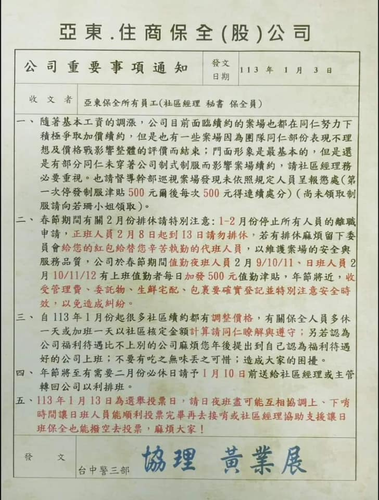 亞東.住商保全(股)公司
公司重要事項通知
發文
日期
113 年 1 月 3 日
收文者
亞東保全所有員工(社區經理 秘書 保全員)
一、隨著基本工資的調漲，公司目前面臨續約的案場也都在同仁努力下
積極爭取加價續約，但是也有一些案場因為團隊同仁部份表現不理
想及價格戰影響整體的評價而結束；門面形象是最基本的，但是還
是有部分同仁未穿著公司制式制服而影響案場續約，請社區經理務
必要重視。也請督導幹部巡視案場發現未依照規定人員呈報懲處(第
一次停發制服津貼 500 元爾後每次 500 元得連續處分)(尚未領取制
服請向若珊小姐領取)。
二、春節期間有關 2 月份排休請特別注意:1-2 月份停止所有人員的離職
申請，正班人員 2 月 8 日起到 13 日請勿排休，若有排休麻煩留下委員
會給您的紅包給替您辛苦執勤的代班人員，以維護案場的安全與
服務品質，公司於春節期間值勤夜班人員 2 月 9/10/11、日班人員 2 月
10/11/12 有上班值勤者每日加發 500 元值勤津貼，年節將近，收
受管理費、委託物、生鮮宅配、包裹要確實登記並特別注意安全時
效，以免造成糾紛。
三、自 113 年 1 月份起很多社區續約都有調整價格，有關保全人員多休
一天或加班一天以社區核定金額計算請同仁瞭解與遵守；另若認為
公司福利待遇比不上別的公司麻煩您年後提出到自己認為福利待遇
好的公司上班；不要有吃之無味丟之可惜；造成大家的困擾。
四、年節將至有需要二月份必休日請予 1 月 10 日前送給社區經理或主管
轉回公司以利排班。
五、113 年 1 月 13 日為選舉投票日，請日夜班盡可能互相協調上、下哨
時間讓日班人員能順利投票完畢再去接哨或社區經理協助支援讓日
班保全也能撥空去投票，麻煩大家！
發文
台中警三部
協理 黃業展